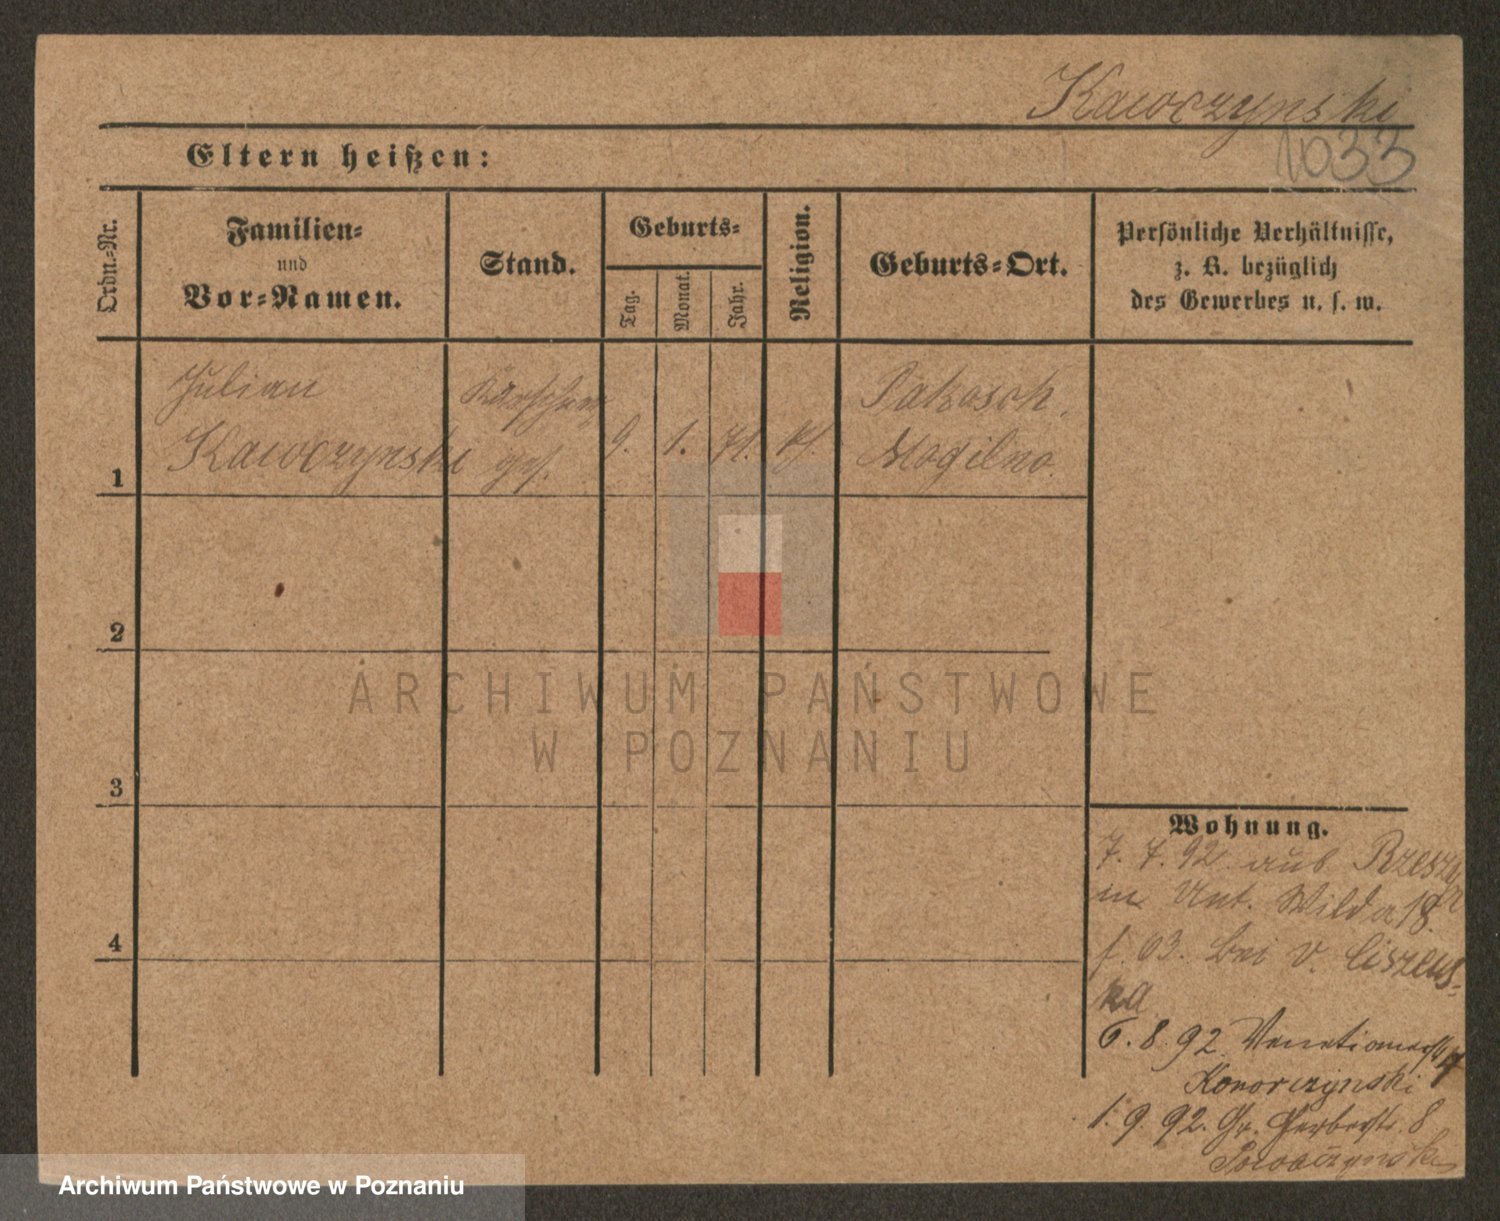 Kawczynski
1033
Eltern heißen:
Ordn.-Nr.
Familien-
und
Vor-Namen.
Stand.
Geburts-
Tag.
Monat.
Jahr.
Religion.
Geburts-Ort.
Persönliche Verhältnisse,
z. B. bezüglich
des Gewerbes u. s. w.
1
Julian
Kawczynski
Kürschner
ges.
9. 1. 71.
Pakosch
Mogilno.
2
3
4
Wohnung.
7. 7. 92 aus
in Unt. Wilda 18.
bei v.
6. 8. 92. Venetianerstr
1. 9. 92. Gr. Gerberstr. 8
ARCHIWUM PAŃSTWOWE
W POZNANIU
Archiwum Państwowe w Poznaniu